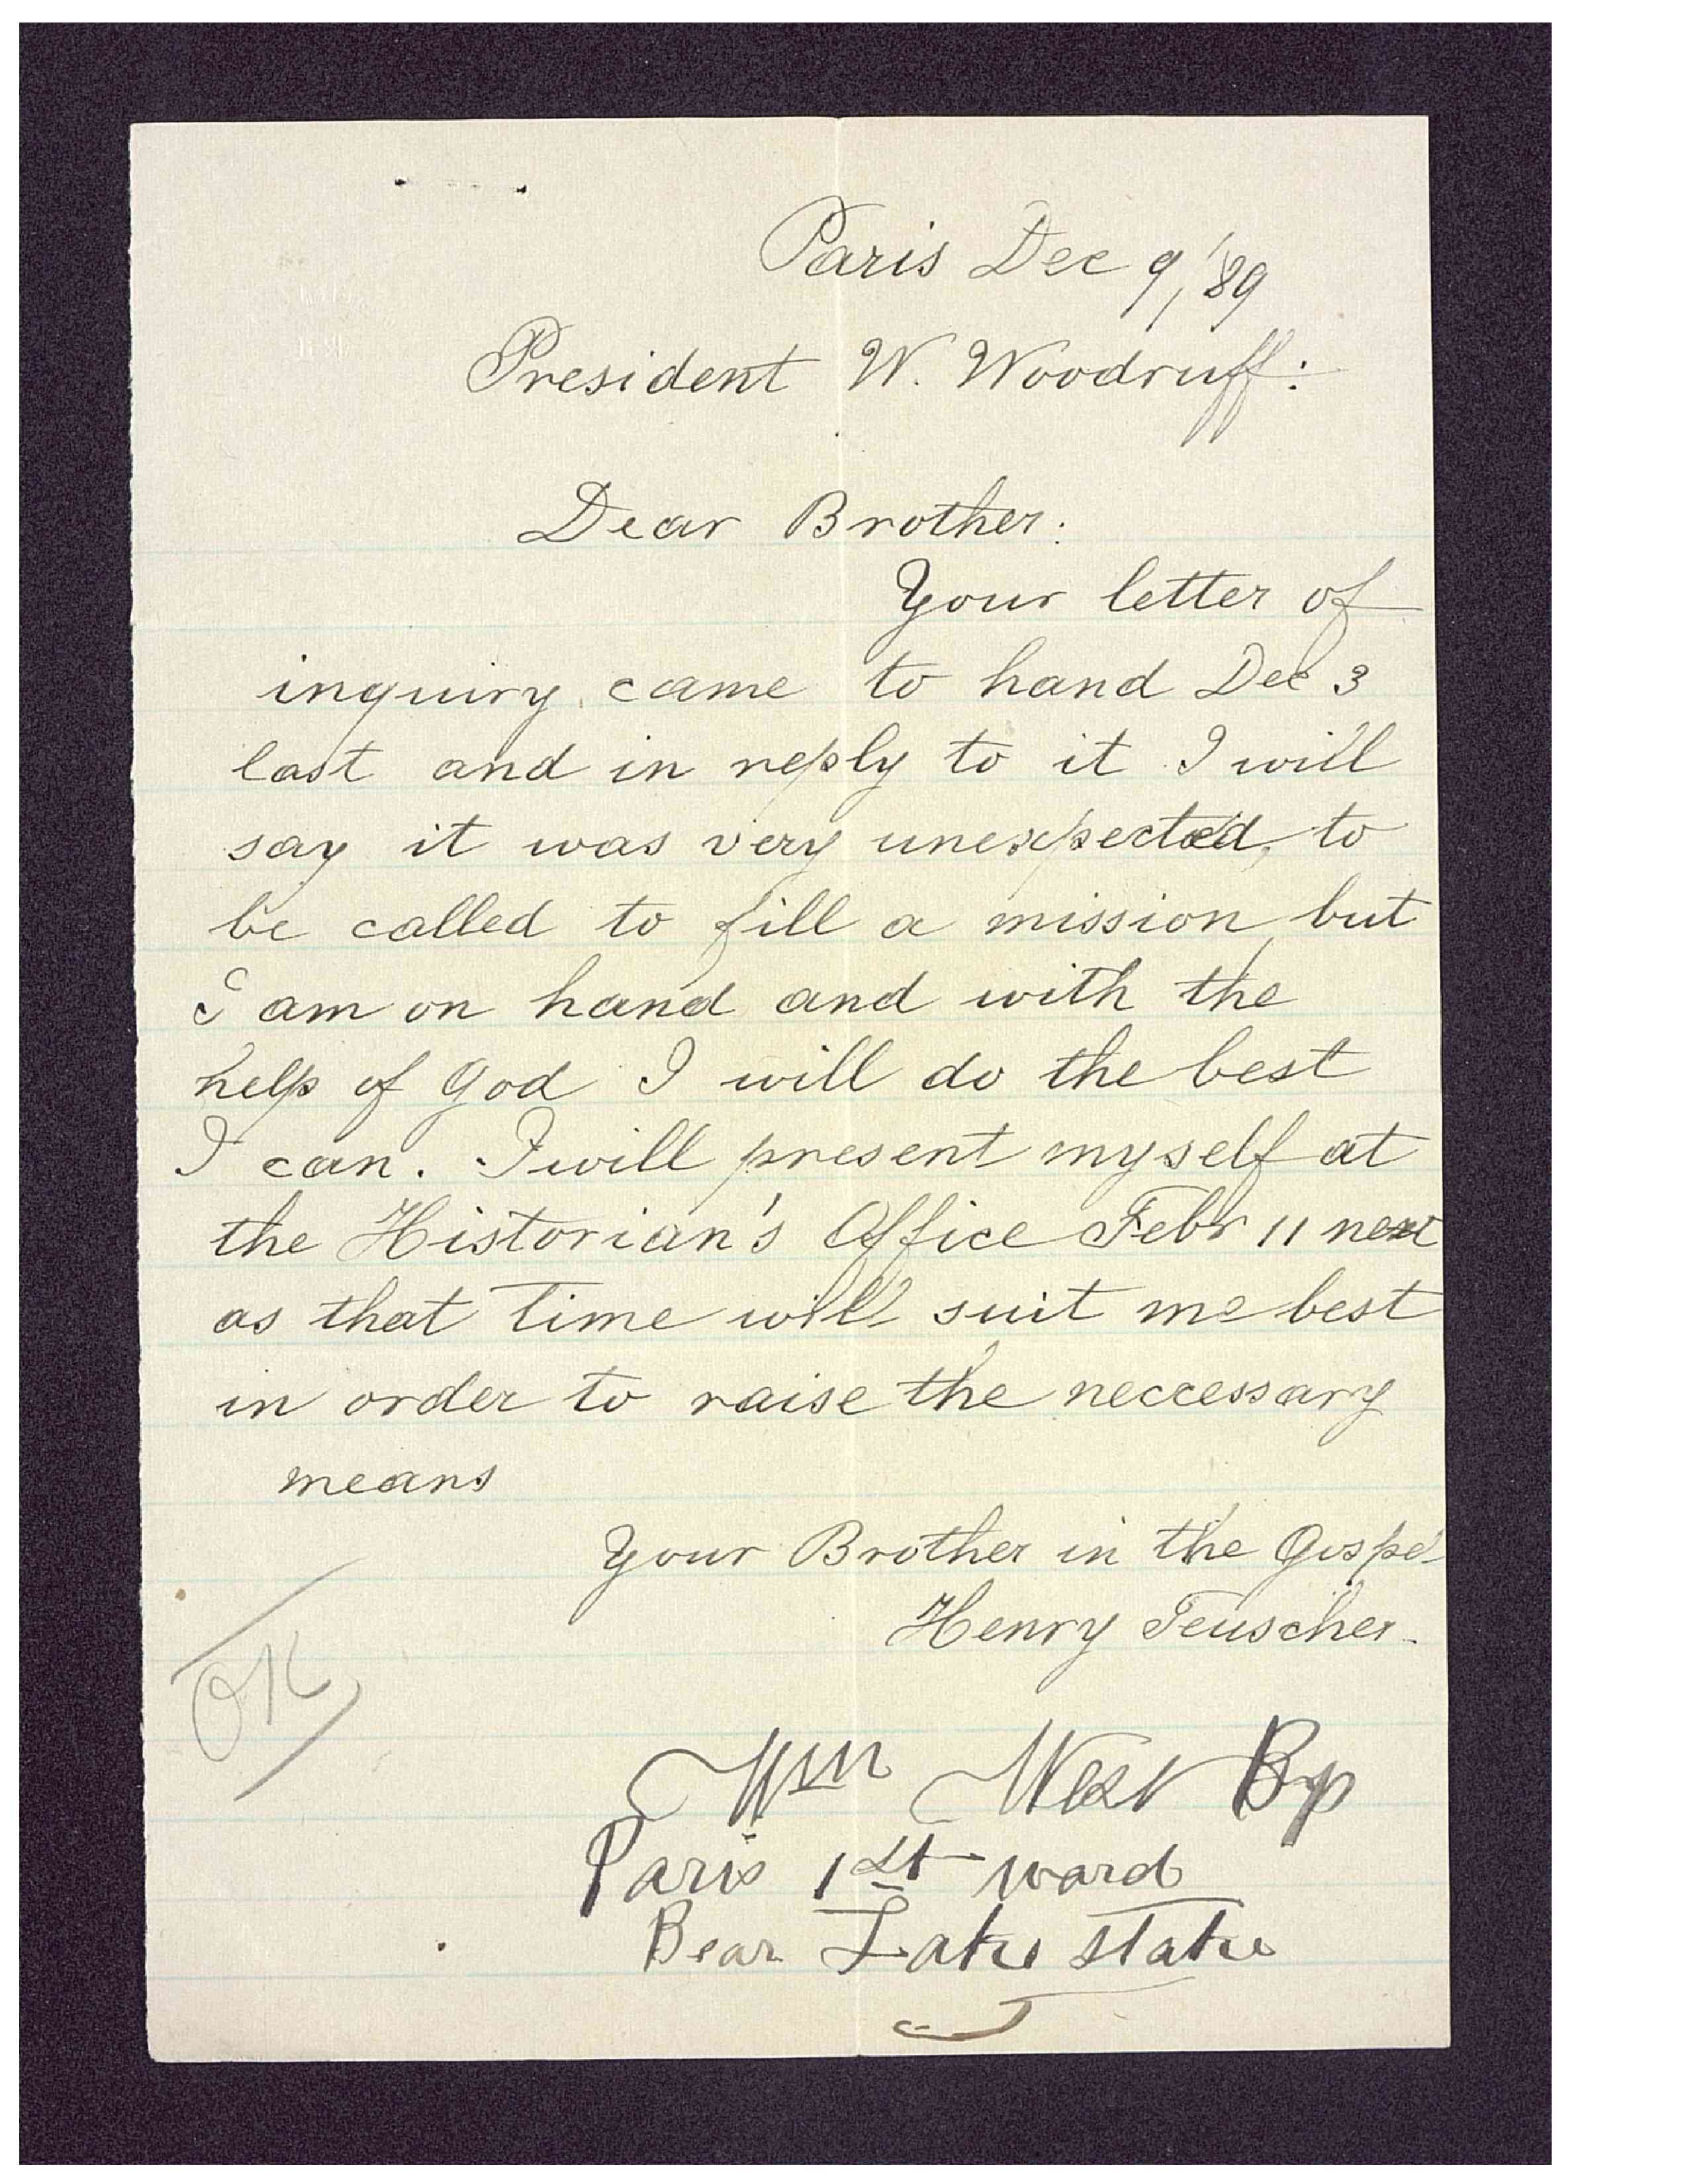 Paris Dec 9, '89
President W. Woodruff:
Dear Brother:
Your letter of
inquiry came to hand Dec 3
last and in reply to it I will
say it was very unexpected, to
be called to fill a mission, but
I am on hand and with the
help of God I will do the best
I can. I will present myself at
the Historian's Office Febr 11 next
as that time will suit me best
in order to raise the neccessary
means
Your Brother in the Gospel
Henry Teuscher.
OK
Wm West Bp
Paris 1st ward
Bear Lake stake